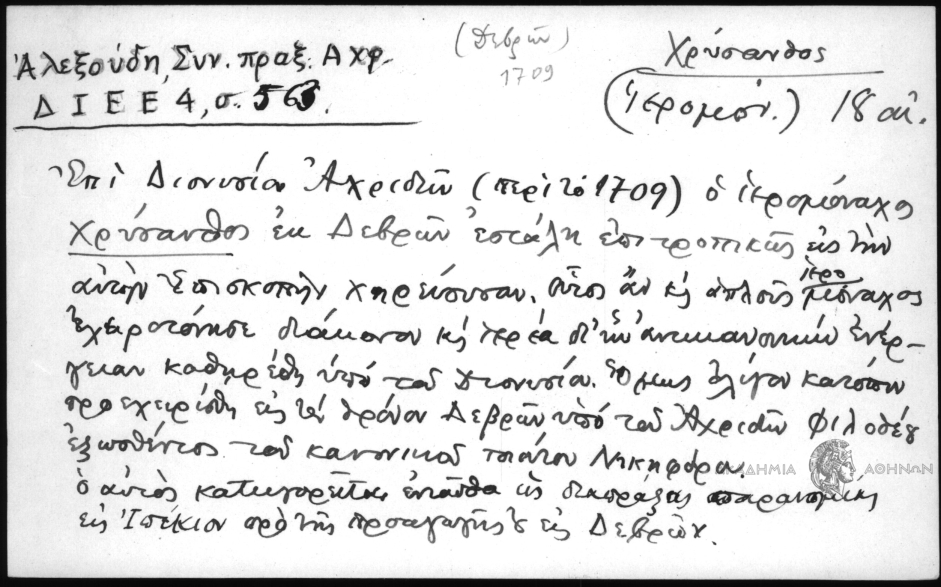 Ἀλεξούδη, Συν. πραξ. Αχρ.
ΔΙΕΕ 4, σ. 563.
(Δεβρῶν)
1709
Χρύσανθος
(Ἱερομόν.) 18 αἰ.
Ἐπὶ Διονυσίου Ἀχριδῶν (περὶ τὸ 1709) ὁ ἱερομόναχος
Χρύσανθος ἐκ Δεβρῶν ἐστάλη ἐπιτροπικῶς εἰς τὴν
αὐτὴν Ἐπισκοπὴν χηρεύουσαν. Οὗτος ἂν κ̀ ἁπλοῦς ἱερομόναχος
ἐχειροτόνησε διάκονον κ̀ ἱερέα δι' ἣν ἀντικανονικὴν ἐνέρ-
γειαν καθῃρέθη ὑπὸ τοῦ Διονυσίου. Ὅμως ὀλίγον κατόπιν
προεχειρίσθη εἰς τὸν θρόνον Δεβρῶν ὑπὸ τοῦ Ἀχριδῶν Φιλοθέου
ἐξωσθέντος τοῦ κανονικοῦ τοιούτου Νικηφόρου.
ὁ αὐτὸς κατηγορεῖται ἐνταῦθα ὡς διαπράξας παρανομίας
εἰς Ἰπέκιον πρὸ τῆς προαγωγῆς εἰς Δεβρῶν.
ΑΚΑΔΗΜΙΑ ΑΘΗΝΩΝ